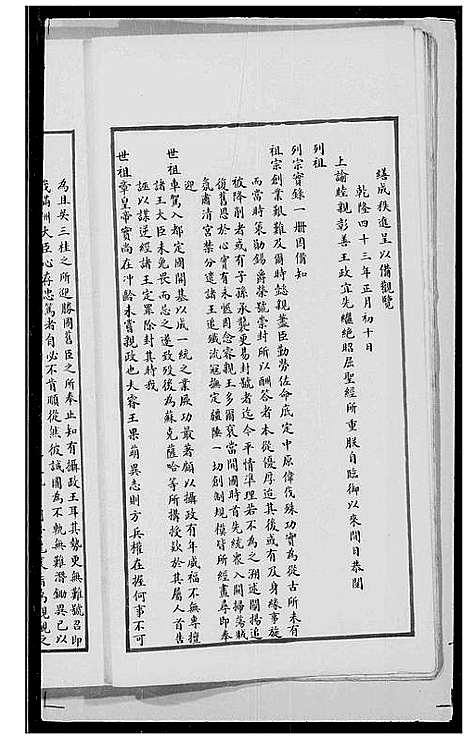 繕成秩進呈以備觀覽
乾隆四十三年正月初十日
上諭睦親彰善王政宜先繼絕昭屈聖經所重朕自臨御以來間日恭閱
列祖
列宗實錄一冊因備知
祖宗創業艱難及爾時懿親藎臣勤勞佐命底定中原偉伐殊功實為從古所未有
而當時策勛錫爵榮號崇封所以酬答者本從優厚迨其後或有及身緣事旋
被降削者或有子孫承襲更易封號者迄今平情準理若不為之溯述闡揚追
復舊恩於心實有未愜因念睿親王多爾袞當開國時首先統衆入關掃蕩賊
氛肅清宮禁分遣諸王追殲流寇撫定疆陲一切創制規模皆所經畫尋即奉
迎
世祖車駕入都定國開基以成一統之業厥功最著顧以攝政有年威福不無專擅
諸王大臣未免畏而忌之遂致歿後為蘇克薩哈等所搆授欵於其屬人首告
誣以謀逆經諸王定罪除封其時我
世祖章皇帝實尚在冲齡未嘗親政也夫睿王果萌異志則方兵權在握何事不可
為且吳三桂之所迎勝國舊臣之所奉止知有攝政王耳其勢更無難號召即
我滿洲大臣心存忠篤者自必不肯順從然彼誠圖為不軌無難潛鋤異己以